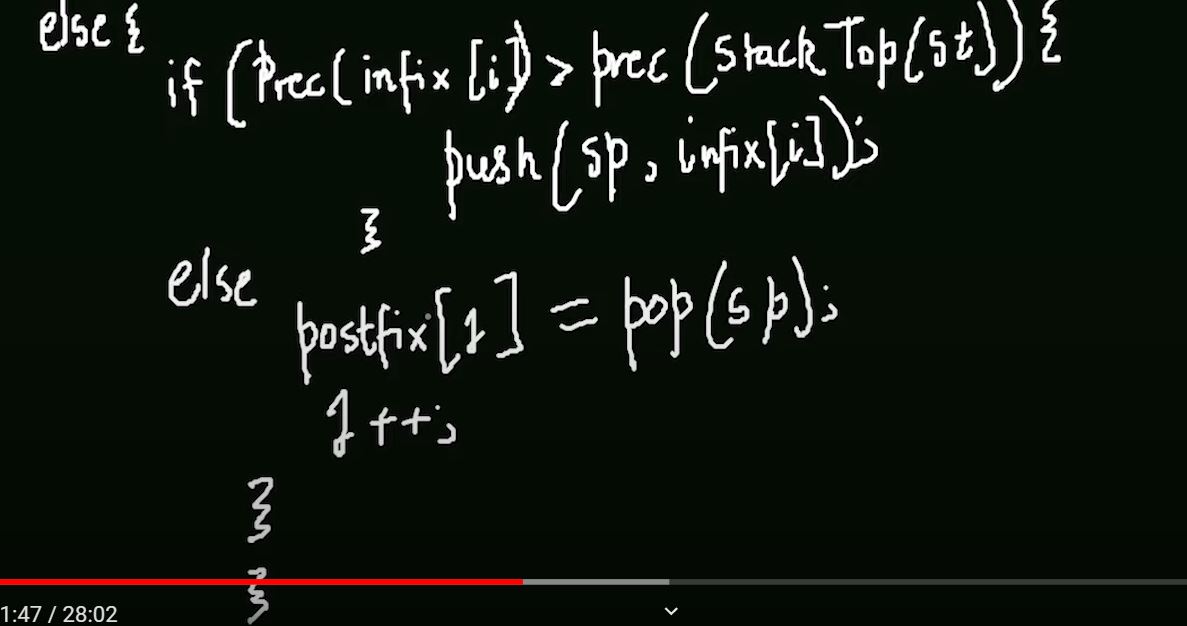 else {
if (Prec(infix[i]) > prec(stackTop(st)) {
push(sp, infix[i]);
}
else
postfix[j] = pop(sp);
j++;
}
}
1:47 / 28:02